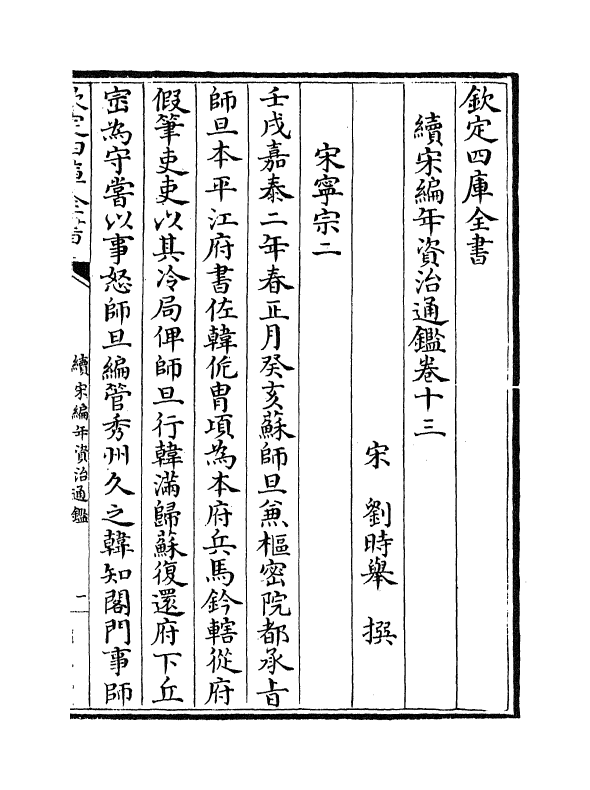 欽定四庫全書
續宋編年資治通鑑卷十三
宋 劉時舉 撰
宋寧宗二
壬戌嘉泰二年春正月癸亥蘇師旦兼樞密院都承旨
師旦本平江府書佐韓侂胄項為本府兵馬鈐轄從府
假筆吏吏以其冷局俾師旦行韓滿歸蘇復還府下丘
崈為守嘗以事怒師旦編管秀州久之韓知閤門事師
欽定四庫全書
續宋編年資治通鑑
一